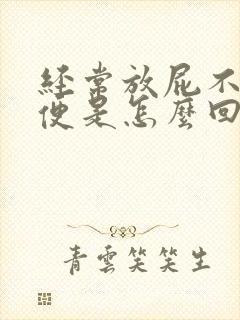 經常放屁不
便是怎麼回
青雲笑笑生